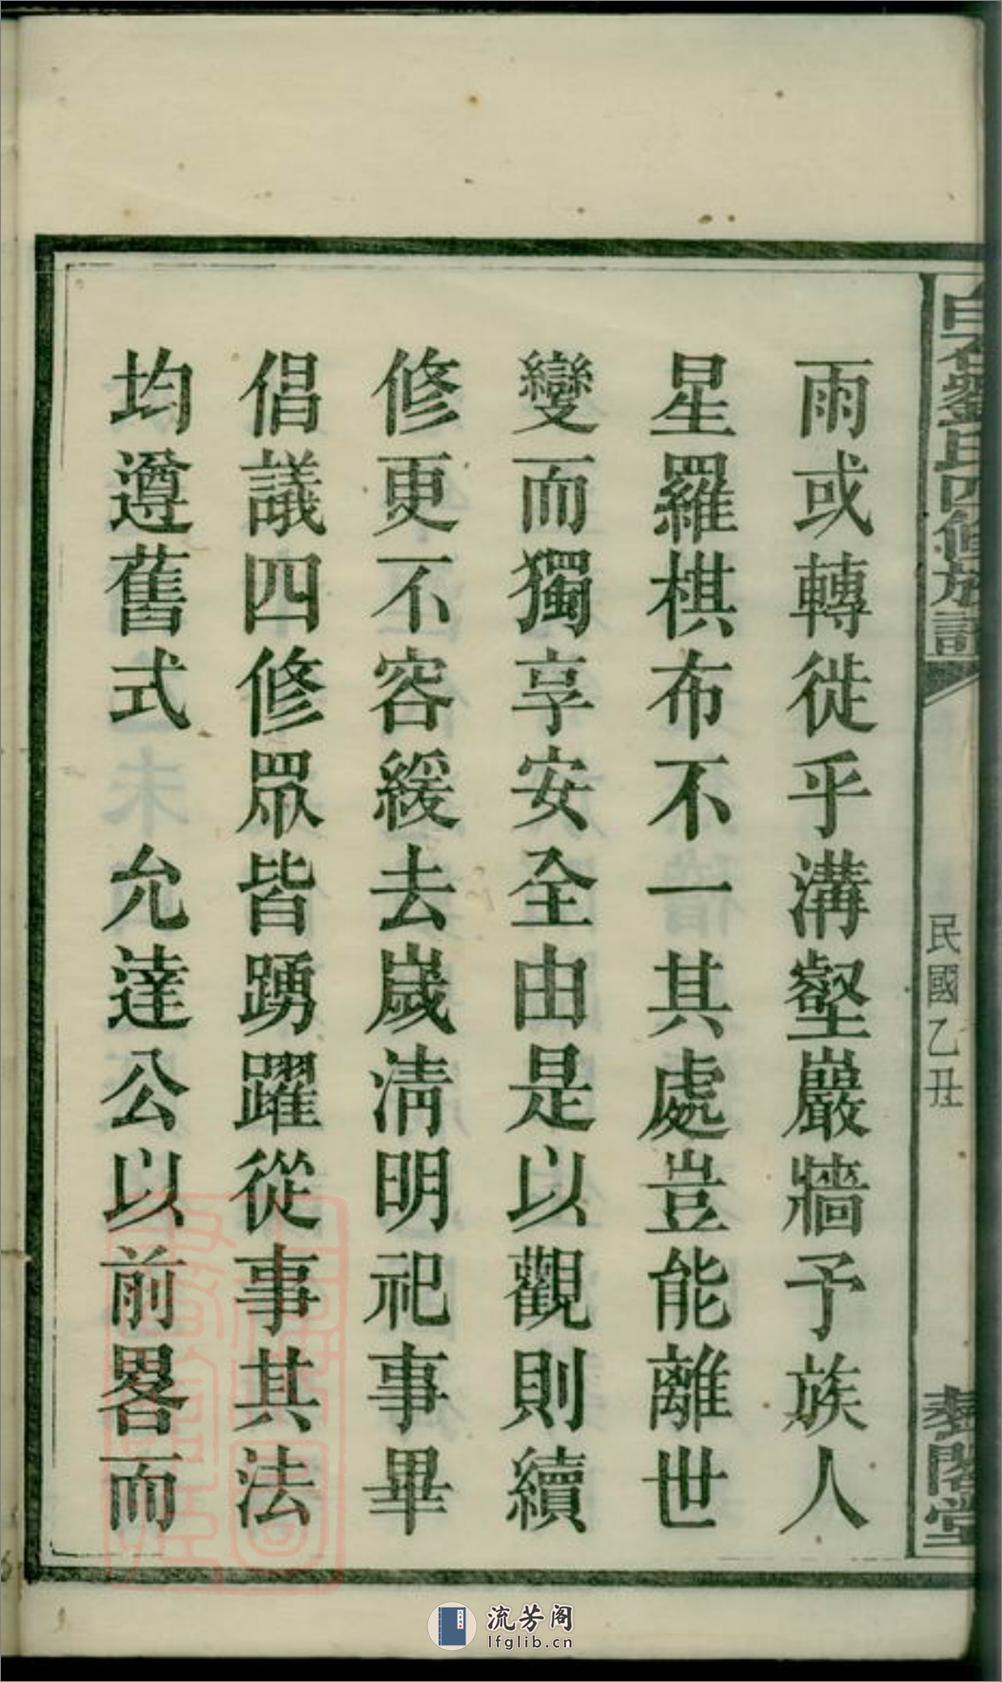 白石劉氏四修族譜
民國乙丑
藜閣堂
雨或轉徙乎溝壑巖牆予族人
星羅棋布不一其處豈能離世
變而獨享安全由是以觀則續
修更不容緩去歲清明祀事畢
倡議四修眾皆踴躍從事其法
均遵舊式　允達公以前畧而
流芳阁
lfglib.cn